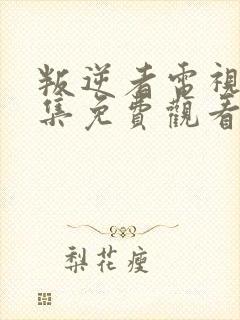 叛逆者電視
集免費觀看
梨花瘦